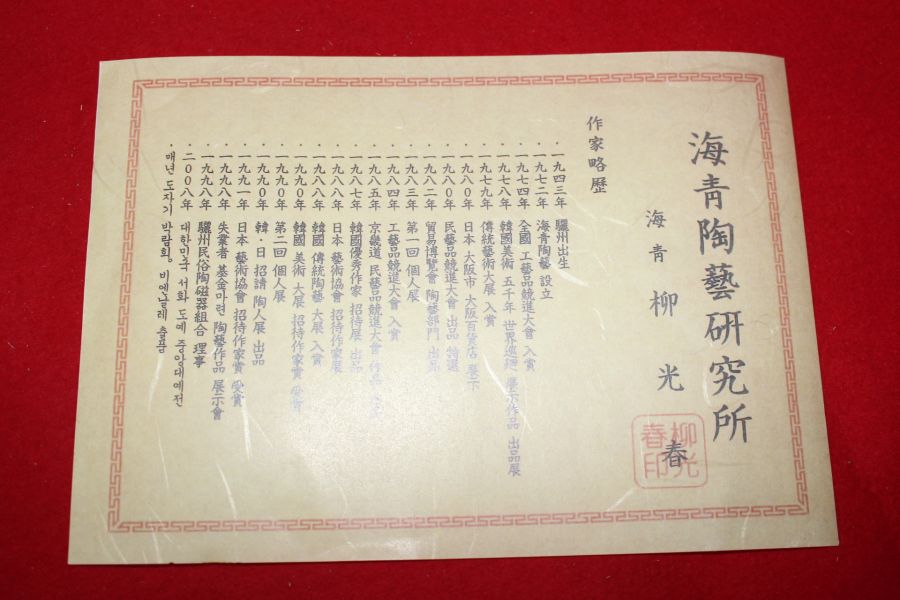 海靑陶藝研究所
海靑 柳光春
柳光春印
作家略歷
· 一九四三年 驪州出生
· 一九七二年 海靑陶藝 設立
· 一九七四年 全國 工藝品競進大會 入賞
· 一九七八年 韓國美術 五千年 世界巡廻 展示作品 出品展
· 一九七九年 傳統藝術大展 入賞
· 一九八0年 日本 大阪市 大阪百貨店 展示
· 一九八0年 民藝品競進大會 出品 特選
· 一九八二年 貿易博覽會 陶藝部門 出品
· 一九八三年 第一回 個人展
· 一九八四年 工藝品競進大會 入賞
· 一九八五年 京畿道 民藝品競進大會 作品
· 一九八七年 韓國優秀作家 招待展 出品
· 一九八八年 日本 藝術協會 招待作家展
· 一九八八年 韓國 傳統陶藝 大展 入賞
· 一九九0年 韓國 美術 大展 招待作家賞 受賞
· 一九九0年 第二回 個人展
· 一九九0年 韓·日 招請 陶人展 出品
· 一九九一年 日本 藝術協會 招待作家賞 受賞
· 一九九八年 失業者 基金마련 陶藝作品 展示會
· 一九九八年 驪州民俗陶磁器組合 理事
· 二00八年 대한민국 서화 도예 중앙대예전
· 매년 도자기 박람회, 비엔날레 출품